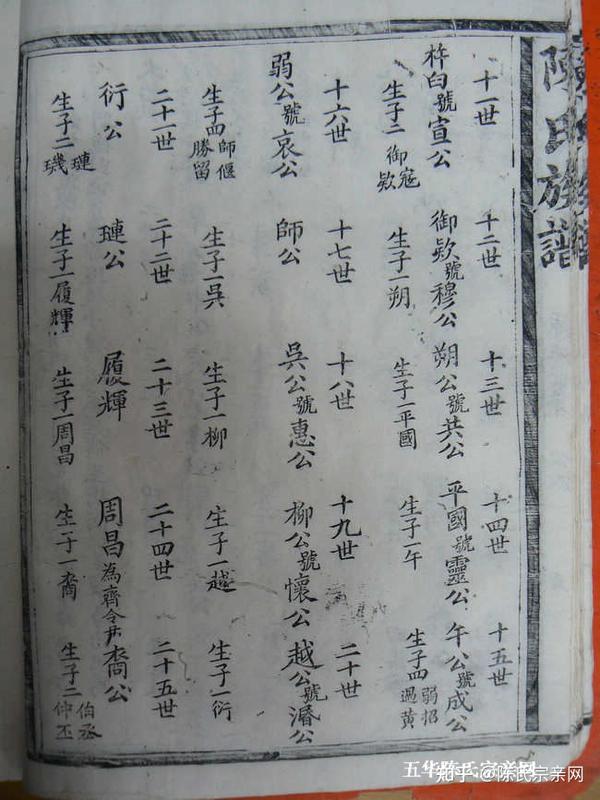 陳氏族譜
十一世 十二世 十三世 十四世 十五世
杵臼號宣公 御欵號穆公 朔公號共公 平國號靈公 午公號成公
生子二御寇欵 生子一朔 生子一平國 生子一午 生子四弱招過黃
十六世 十七世 十八世 十九世 二十世
弱公號哀公 師公 吳公號惠公 柳公號懷公 越公號湣公
生子四師偃勝留 生子一吳 生子一柳 生子一越 生子一衍
二十一世 二十二世 二十三世 二十四世 二十五世
衍公 璉公 履輝 周昌為齊令尹 裔公
生子二璉璣 生子一履輝 生子一周昌 生子一裔 生子二伯丞仲丕
五华陈氏宗亲网
知乎 @陈氏宗亲网